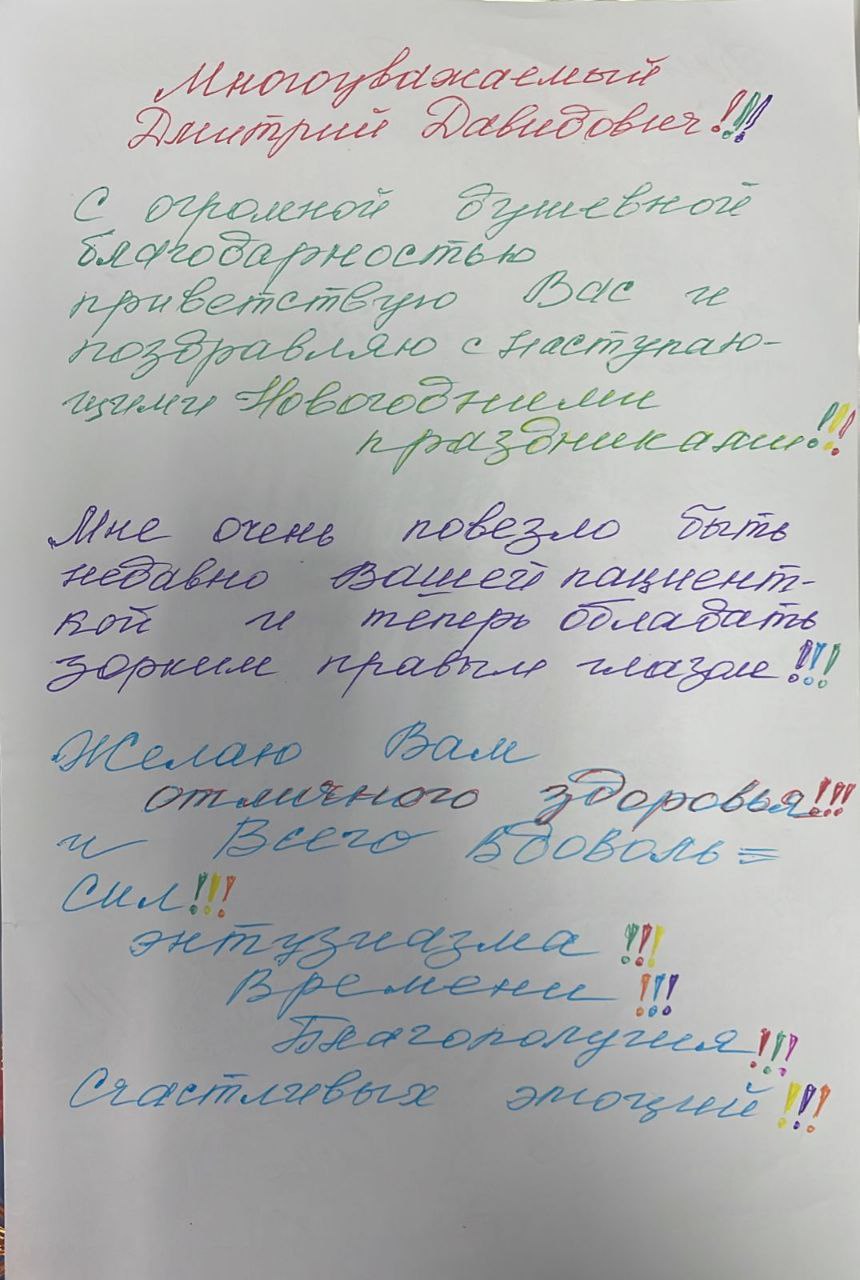 Многоуважаемый
Дмитрий Давидович!!!
С огромной душевной
благодарностью
приветствую Вас и
поздравляю с наступаю-
щими Новогодними
праздниками!!!
Мне очень повезло быть
недавно Вашей пациент-
кой и теперь обладать
зорким правым глазом!!!
Желаю Вам
отличного здоровья!!!
и Всего вдоволь =
сил!!!
энтузиазма!!!
времени!!!
Благополучия!!!
Счастливых эмоций!!!